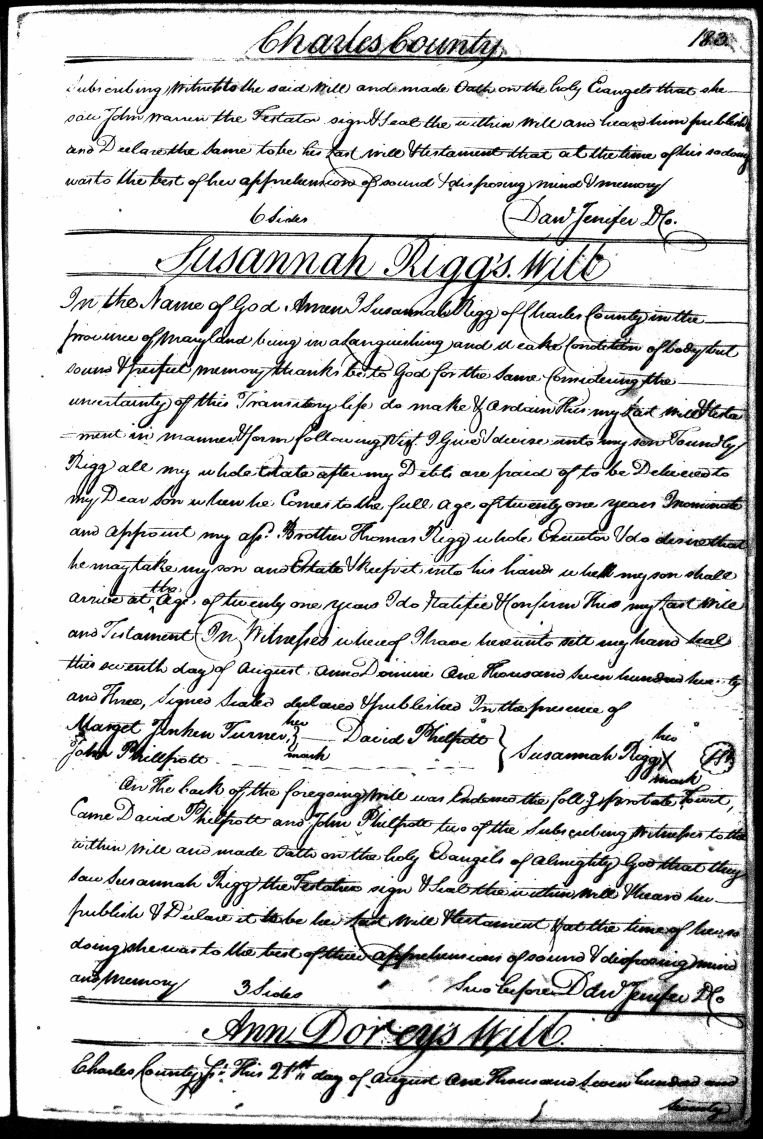 Charles County 183.
Subscribing Witness to the said Will and made Oath on the holy Evangels that she
saw John Warren the Testator sign & Seal the within Will and heard him publish
and Declare the same to be his Last Will & testament that at the time of his so doing
was to the best of her apprehension of sound & disposing mind & memory
6 Sides Danl Jenifer D Co.
Susannah Rigg's Will
In the Name of God Amen I Susannah Rigg of Charles County in the
province of Maryland being in a Languishing and Weake Condition of body but
sound & perfect memory thanks be to God for the same Considering the
uncertainty of this Transitory life do make & ordain this my Last Will & testa
-ment in manner & form following Vizt. I Give & devise unto my son Townly
Rigg all my whole Estate after my Debts are paid of to be Delivered to
my Dear son when he Comes to the full age of twenty one years I nominate
and appoint my Brother Thomas Rigg whole Executor & do desire that
he may take my son and Estate & keep it into his hands whell my son shall
arrive at the Age of twenty one years I do Ratifie & Confirm this my Last Will
and Testament In Witnesses whereof I have hereunto sett my hand seal
this seventh day of August anno Domini One Thousand Seven hundred twenty
and Three, Signed Sealed declared & published In the presence of
Marget Jenken Turner her mark David Philpott
John Phillpott Susannah Rigg X her mark
On the back of the foregoing Will was Endorsed the follg probate Vizt,
Came David Philpott and John Philpott two of the Subscribing Witnesses to the
within Will and made Oath on the holy Evangels of Almighty God that they
saw Susannah Rigg the Testatrix sign & Seal the within Will & heard her
publish & Declare it to be her Last Will & testament & at the time of her so
doing she was to the best of their apprehensions of sound & disposing mind
and Memory 3 Sides before Danl Jenifer D Co
Ann Dorey's Will
Charles County Ss. This 21st day of August One Thousand Seven hundred and
twenty